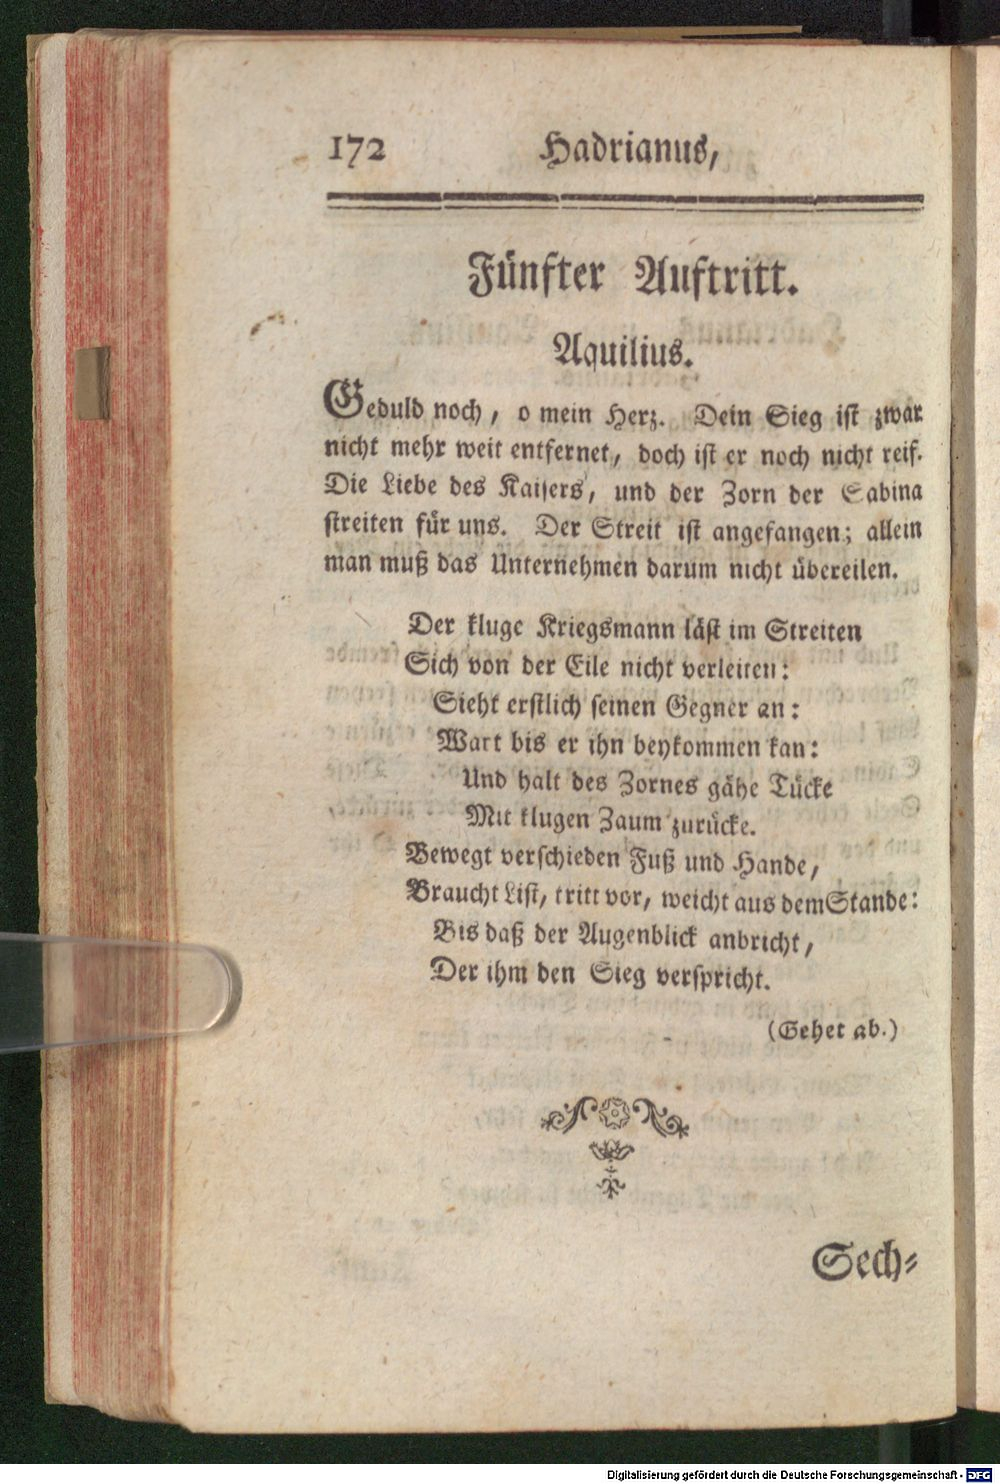 172 Hadrianus,
Fünfter Auftritt.
Aquilius.
Geduld noch, o mein Herz. Dein Sieg ist zwar
nicht mehr weit entfernet, doch ist er noch nicht reif.
Die Liebe des Kaisers, und der Zorn der Sabina
streiten für uns. Der Streit ist angefangen; allein
man muß das Unternehmen darum nicht übereilen.
Der kluge Kriegsmann läst im Streiten
Sich von der Eile nicht verleiten:
Sieht erstlich seinen Gegner an:
Wart bis er ihn beykommen kan:
Und halt des Zornes gähe Tücke
Mit klugen Zaum zurücke.
Bewegt verschieden Fuß und Hande,
Braucht List, tritt vor, weicht aus dem Stande:
Bis daß der Augenblick anbricht,
Der ihm den Sieg verspricht.
(Gehet ab.)
Sech-
Digitalisierung gefördert durch die Deutsche Forschungsgemeinschaft - DFG